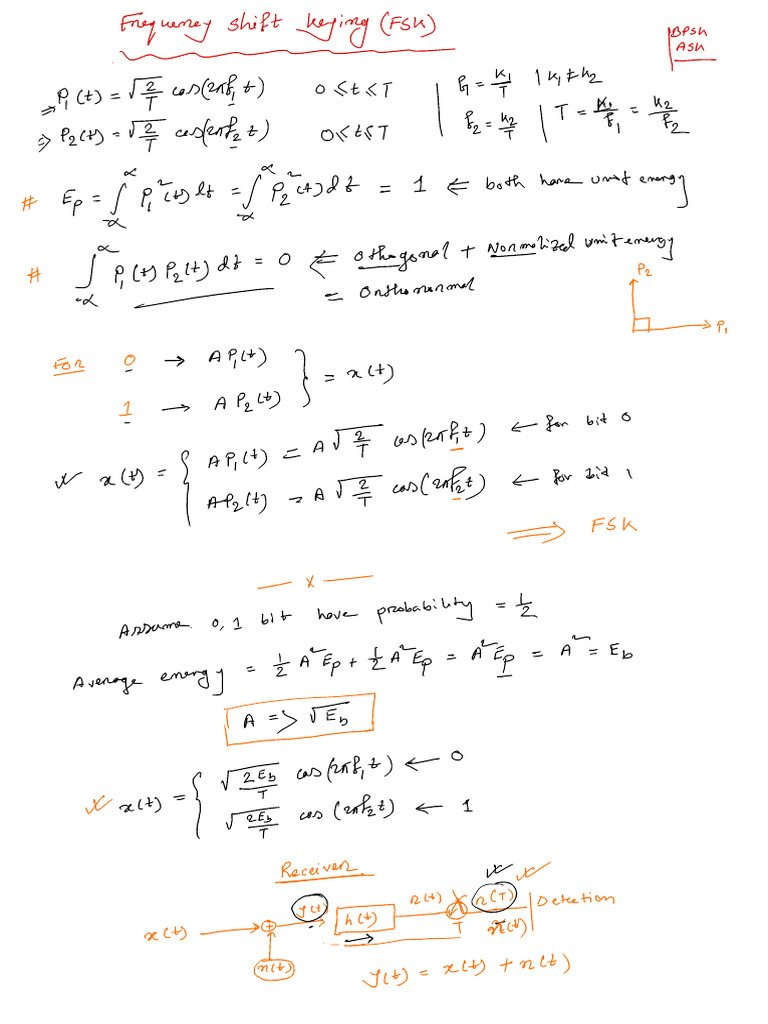 Frequency Shift Keying (FSK)
BPSK
ASK
⇒ P₁(t) = √(2/T) cos(2πf₁t) 0 ≤ t ≤ T
f₁ = K₁/T | K₁ ≠ K₂
⇒ P₂(t) = √(2/T) cos(2πf₂t) 0 ≤ t ≤ T
f₂ = K₂/T | T = K₁/f₁ = K₂/f₂
# E_p = ∫_{-α}^{α} P₁²(t) dt = ∫_{-α}^{α} P₂²(t) dt = 1 ← both have unit energy
# ∫_{-α}^{α} P₁(t) P₂(t) dt = 0 ⇐ Orthogonal + Normalized unit energy
= Orthonormal
P₂
P₁
For 0 → AP₁(t)
1 → AP₂(t) } = x(t)
x(t) = { AP₁(t) = A√(2/T) cos(2πf₁t) ← for bit 0
AP₂(t) = A√(2/T) cos(2πf₂t) ← for bit 1
⇒ FSK
— x —
Assume 0, 1 bit have probability = 1/2
Average energy = 1/2 A²E_p + 1/2 A²E_p = A²E_p = A² = E_b
A => √E_b
x(t) = { √(2E_b/T) cos(2πf₁t) ← 0
√(2E_b/T) cos(2πf₂t) ← 1
Receiver
x(t) → + y(t) h(t) r(t) T r(T) Detection
n(t)
y(t) = x(t) + n(t)